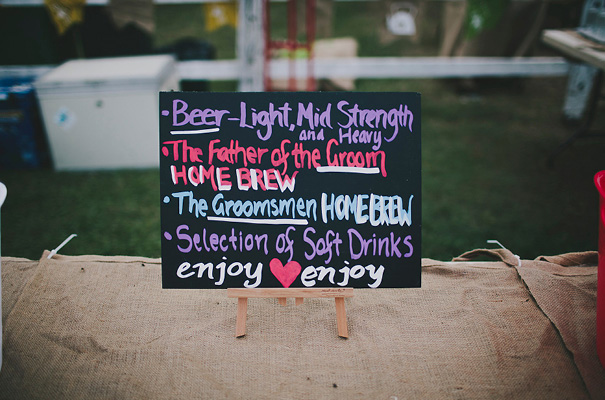 • Beer - Light, Mid Strength
and Heavy
• The Father of the Groom
HOME BREW
• The Groomsmen HOMEBREW
• Selection of Soft Drinks
enjoy ♥ enjoy